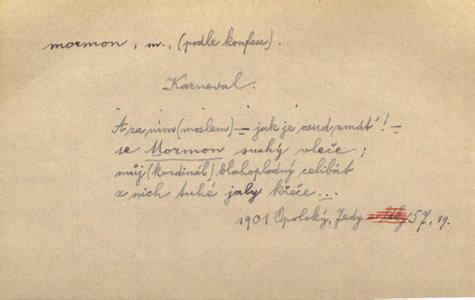 mormon, m., (podle konfese).
Karneval.
A za ním (moslem) – jak je osud zmát'! –
se Mormon suchý vleče;
můj (kardinál) blahoplodný celibát
z nich tuhé jaly křeče...
1901 Opolský, Jedy 57, 19.